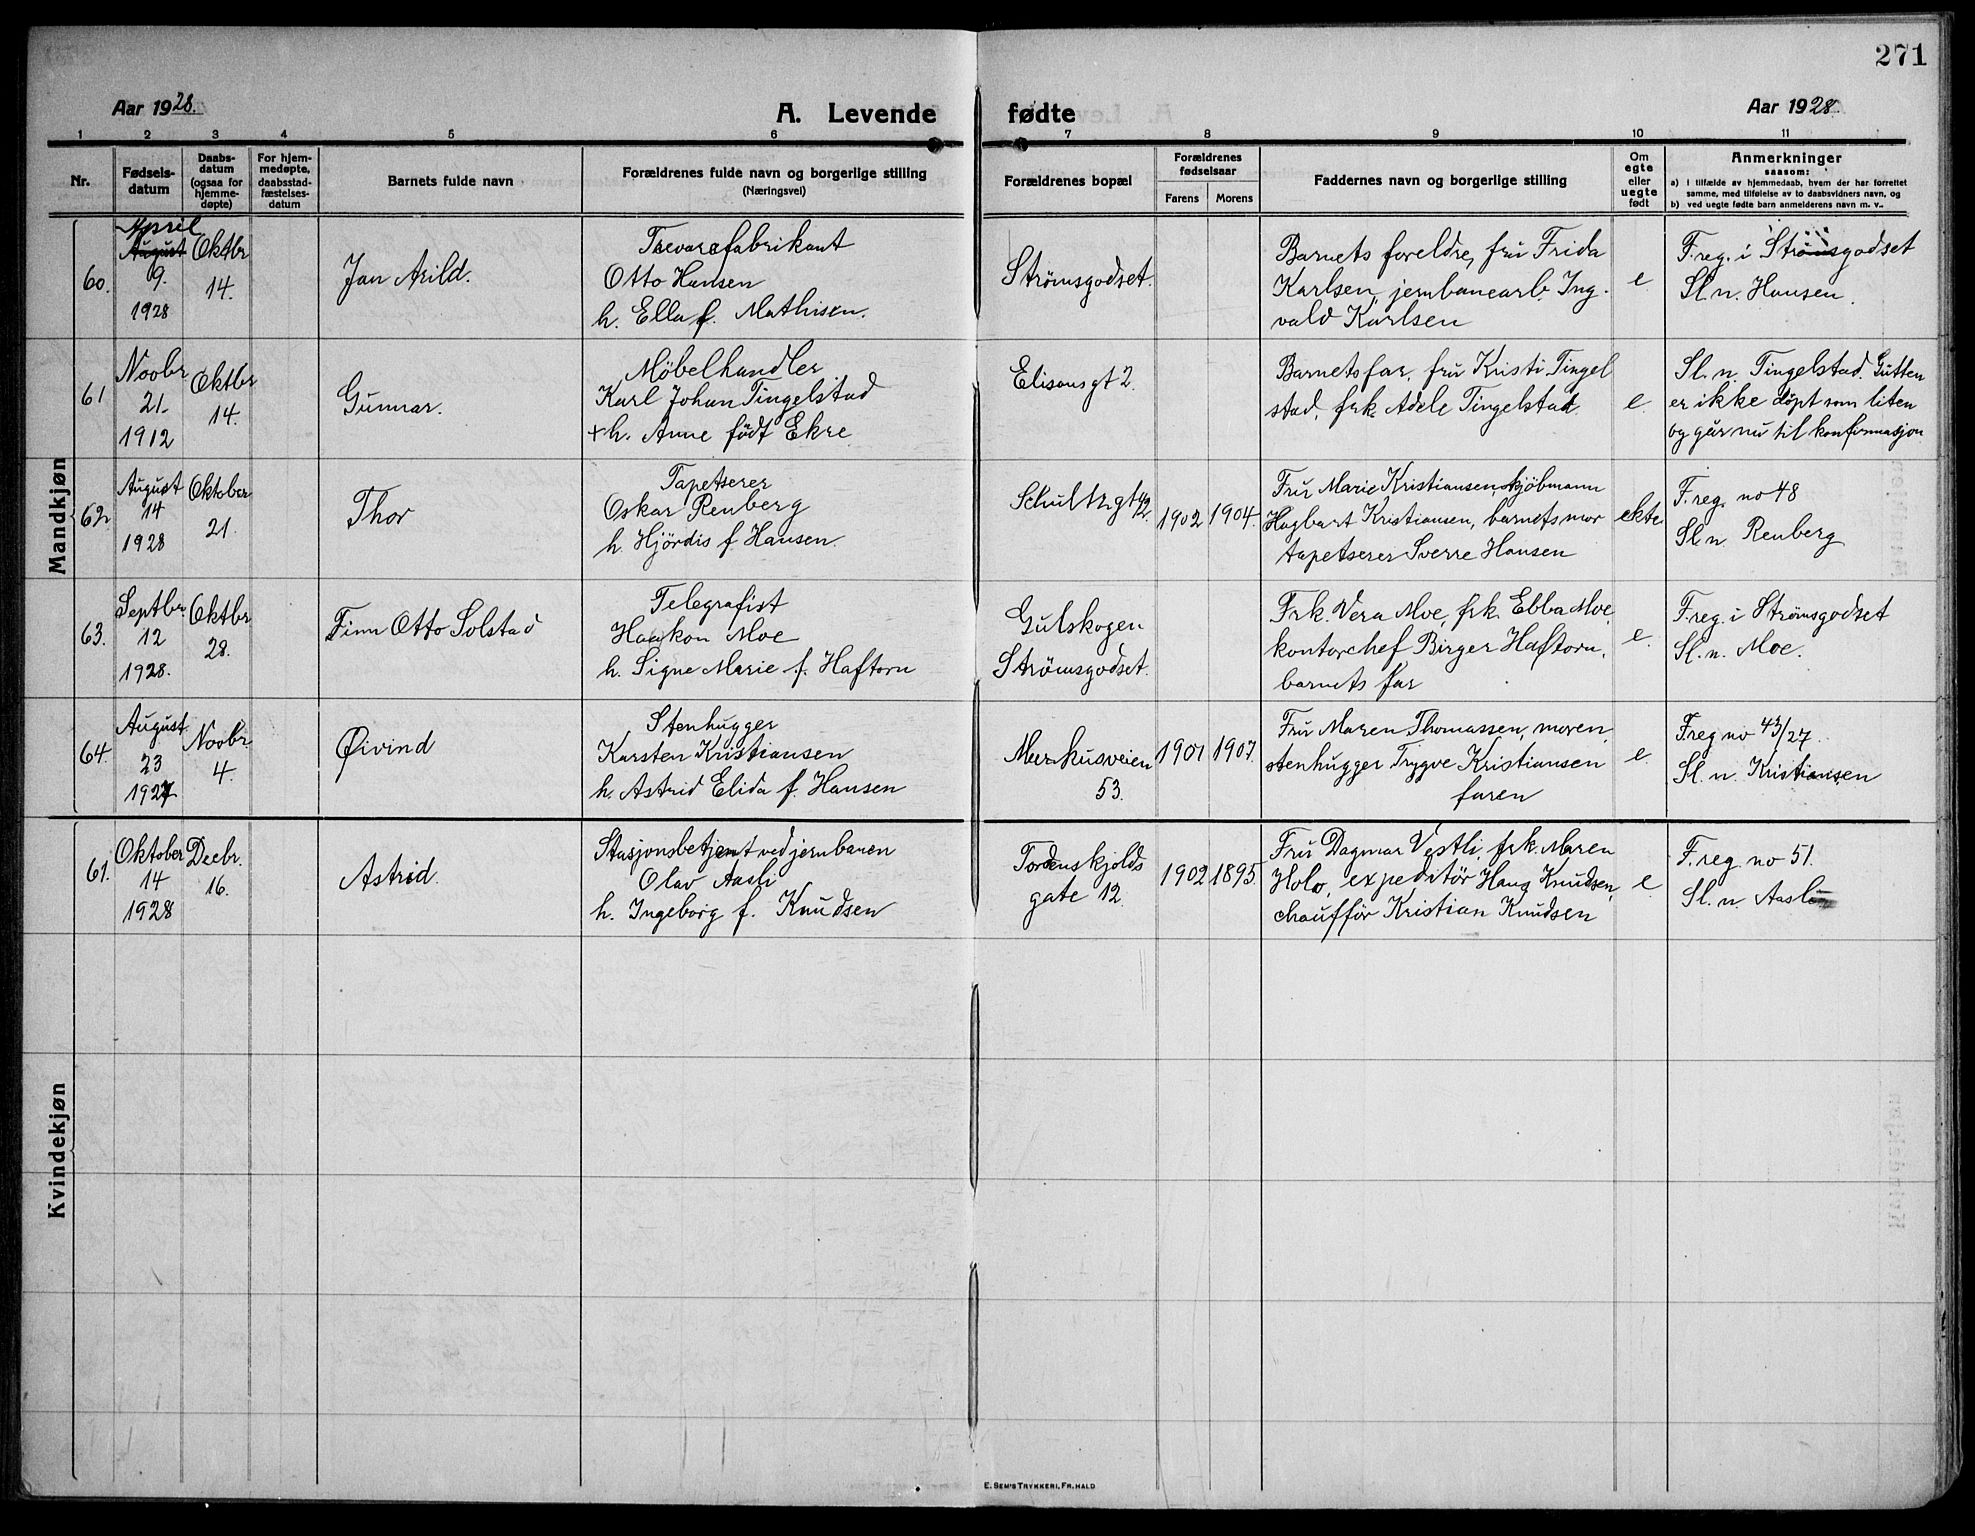 271
Aar 1928. A. Levende fødte Aar 1928.
1 2 3 4 5 6 7 8 9 10 11
Nr.
Fødsels-
datum
Daabs-
datum
(ogsaa for
hjemme-
døpte)
For hjem-
medøpte,
daabsstad-
fæstelses-
datum
Barnets fulde navn
Forældrenes fulde navn og borgerlige stilling
(Næringsvei)
Forældrenes bopæl
Forældrenes
fødselsaar
Farens Morens
Faddernes navn og borgerlige stilling
Om
egte
eller
uegte
født
Anmerkninger
saasom:
a) i tilfælde av hjemmedaab, hvem der har forrettet
samme, med tilføielse av to daabsvidners navn, og
b) ved uegte fødte barn anmelderens navn m. v..
Mandkjøn
60.
April
August
9.
1928
Oktbr
14.
Jan Arild.
Trevarefabrikant
Otto Hansen
h. Ella f. Mathisen.
Strømsgodset.
Barnets foreldre, fru Frida
Karlsen, jernbanearb. Ing-
vald Karlsen
e
F. reg. i Strømsgodset
Sl. n. Hansen.
61
Novbr
21.
1912
Oktbr
14.
Gunnar.
Møbelhandler
Karl Johan Tingelstad
+ h. Anne født Ekre
Elisonsgt 2.
Barnets far, fru Kristi Tingel
stad, frk. Adele Tingelstad
e.
Sl. n Tingelstad. Gutten
er ikke døpt som liten
og går nu til konfirmasjon
62
August
14
1928
Oktober
21.
Thor
Tapetserer
Oskar Renberg
h Hjördis f. Hansen.
Schultzgt 42.
1902 1904.
Fru Marie Kristiansen, kjöbmann
Hagbart Kristiansen, barnets mor
tapetserer Sverre Hansen
ekte
F. reg. no 48
Sl. n. Renberg
63.
Septbr
12
1928.
Oktbr
28.
Finn Otto Solstad
Telegrafist
Haakon Moe
h. Signe Marie f. Haftorn
Gulskogen
Strømsgodset.
Frk. Vera Moe, frk. Ebba Moe,
kontorchef Birger Haftorn,
barnets far
e.
F. reg. i Strømsgodset
Sl. n. Moe.
64.
August
23
1927
Novbr.
4.
Øivind
Stenhugger
Karsten Kristiansen
h. Astrid Elida f. Hansen
53.
1901 1907.
Fru Maren Thomassen, moren,
stenhugger Trygve Kristiansen
faren
e.
F reg no 43/27.
Sl. n. Kristiansen
Kvindekjøn
61.
Oktober
14
1928
Decbr.
16.
Astrid.
Stasjonsbetjent ved jernbanen
Olav Aasli
h. Ingeborg f. Knudsen
Tordenskjolds
gate 12.
1902 1895.
Fru Dagmar Vestli, frk. Maren
Holo, expeditör Hans Knudsen,
chaufför Kristian Knudsen
e
F. reg. no 51.
Sl. n. Aasli
E. SEM'S TRYKKERI, FR.HALD